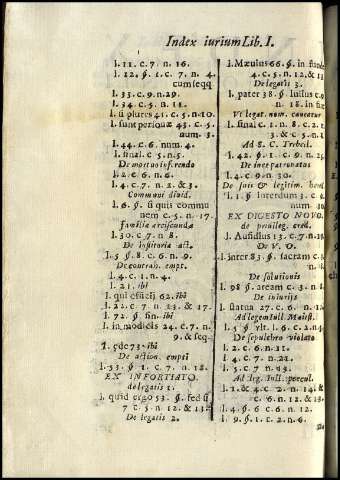 Index iurium Lib. I.
l. 11. c. 7. n. 16.
l. 12. §. 1. c. 7. n. 4.
cum seqq
l. 33. c. 9. n. 29.
l. 34. c. 5. n. 11.
l. si plures 41. c. 5. n. 10.
l. sunt personæ 43. c. 5.
num. 3.
l. 44. c. 6. num. 4.
l. final. c. 5. n. 5.
De mortuo inferendo
l. 2. c. 6. n. 6.
l. 4. c. 7. n. 2. & 3.
Communi divid.
l. 6. §. si quis commu
nem c. 5. n. 17.
familiæ erciscundæ
l. 30. c. 7. n. 8.
De institoria act.
l. 5 §. 8. c. 6. n. 9.
De contrah. empt.
l. 4. c. 1. n. 4.
l. 21. ibi
l. qui efficij 62. ibi
l. 22. c. 7. n. 13. & 17.
l. 72. §. fin. ibi
l. in modicis 24. c. 7. n.
9. & seq.
l. sede 73. ibi
De action. empti
l. 53. §. 1. c. 7. n. 18.
EX INFORTIATO.
de legatis 1.
l. quid ergo 53. §. sed si
7 c. 5. n. 12. & 13.
De legatis 2.
l. Mævius 66. §. in fund
4. c. 5. n. 12. & 13
De legatis 3.
l. pater 38. §. iulius c. 9
n. 18. in
Vt legat. num. caveatur
l. final c. 1. n. 8. c. 2.
3. & c 5. n. 1
Ad S. C. Trebell.
l. 42. §. 1. c. 9. n.
De iure patronatus
l. 4. c. 9. n. 30.
De suis & legitim. hered
l. 1. §. Interdum 3. c.
num. 10
EX DIGESTO NOVO.
de privileg. cred.
l. Aufidius 13. c. 7. n. 1
De V. O.
l. inter 83. §. sacram c.
n.
De solutionis
l. 98 §. aream c. 3. n.
De iniurijs
l. statua 27. c. 6. n. 12
Ad legem Iull. Maiest.
l. 5 §. vlt. l. 6. c. 2. n.
De sepulchro violato
l. 2. c. 6. n. 11.
l. 4. c. 7. n. 21.
l. 5. c. 7. n. 13.
Ad leg. Iull. pecul.
l. 1. & 4. c. 2. n. 14. &
c. 6. n. 13.
l. 4. §. 6. c. 6. n. 12.
l. 9. §. 1. c. 2. n. 6.